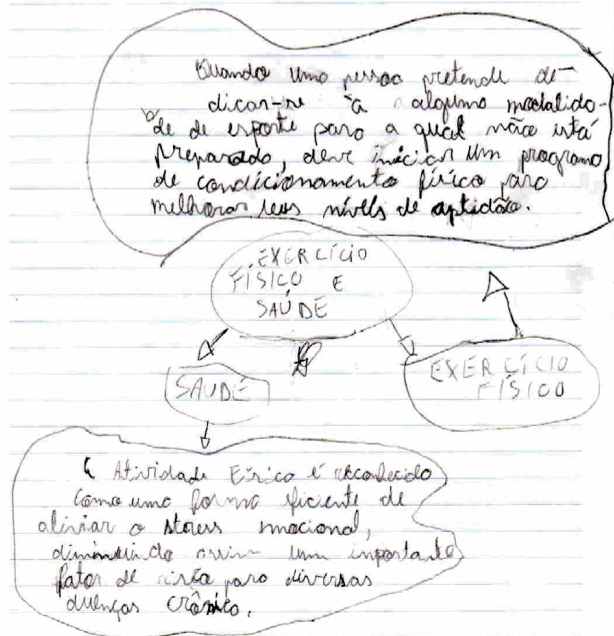 Quando uma pessoa pretende de-
dicar-se à alguma modalida-
de de esporte para a qual não está
preparado, deve iniciar um programa
de condicionamento físico para
melhorar seus níveis de aptidão.
EXERCÍCIO
FÍSICO E
SAÚDE
SAUDE
EXERCÍCIO
FÍSICO
Atividade Física é reconhecido
como uma forma eficiente de
aliviar o stress emocional,
diminuindo assim um importante
fator de risco para diversas
duenças crônica.